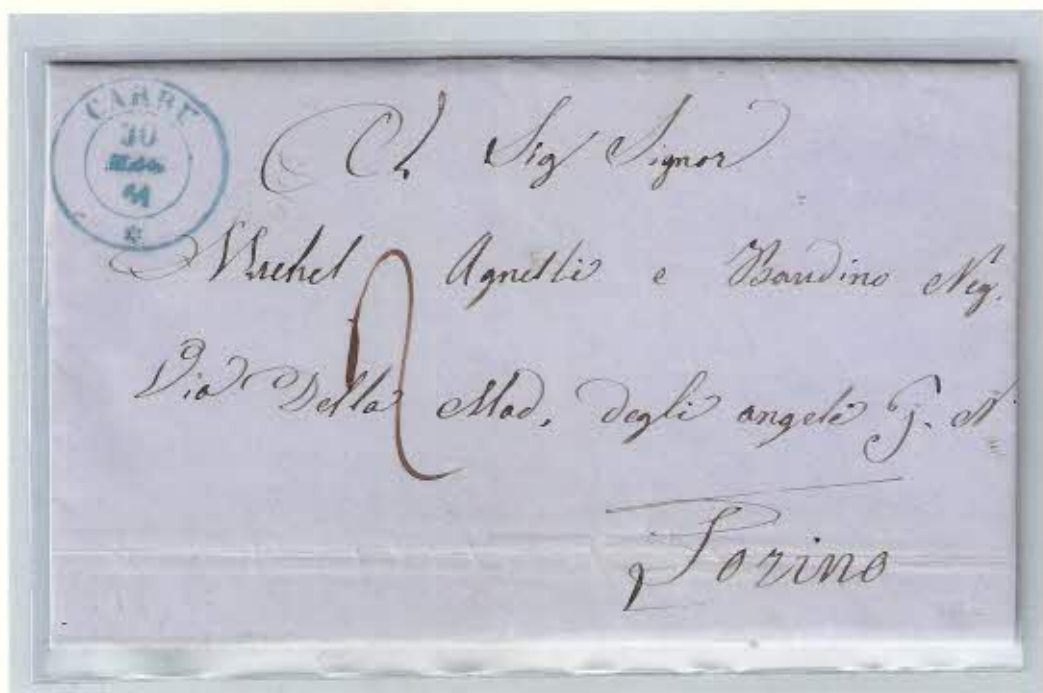 CARRU
30
61
Sig Signor
Michel Agnelli e Baudino Neg.
2
Via Della Mad. degli angeli
Torino